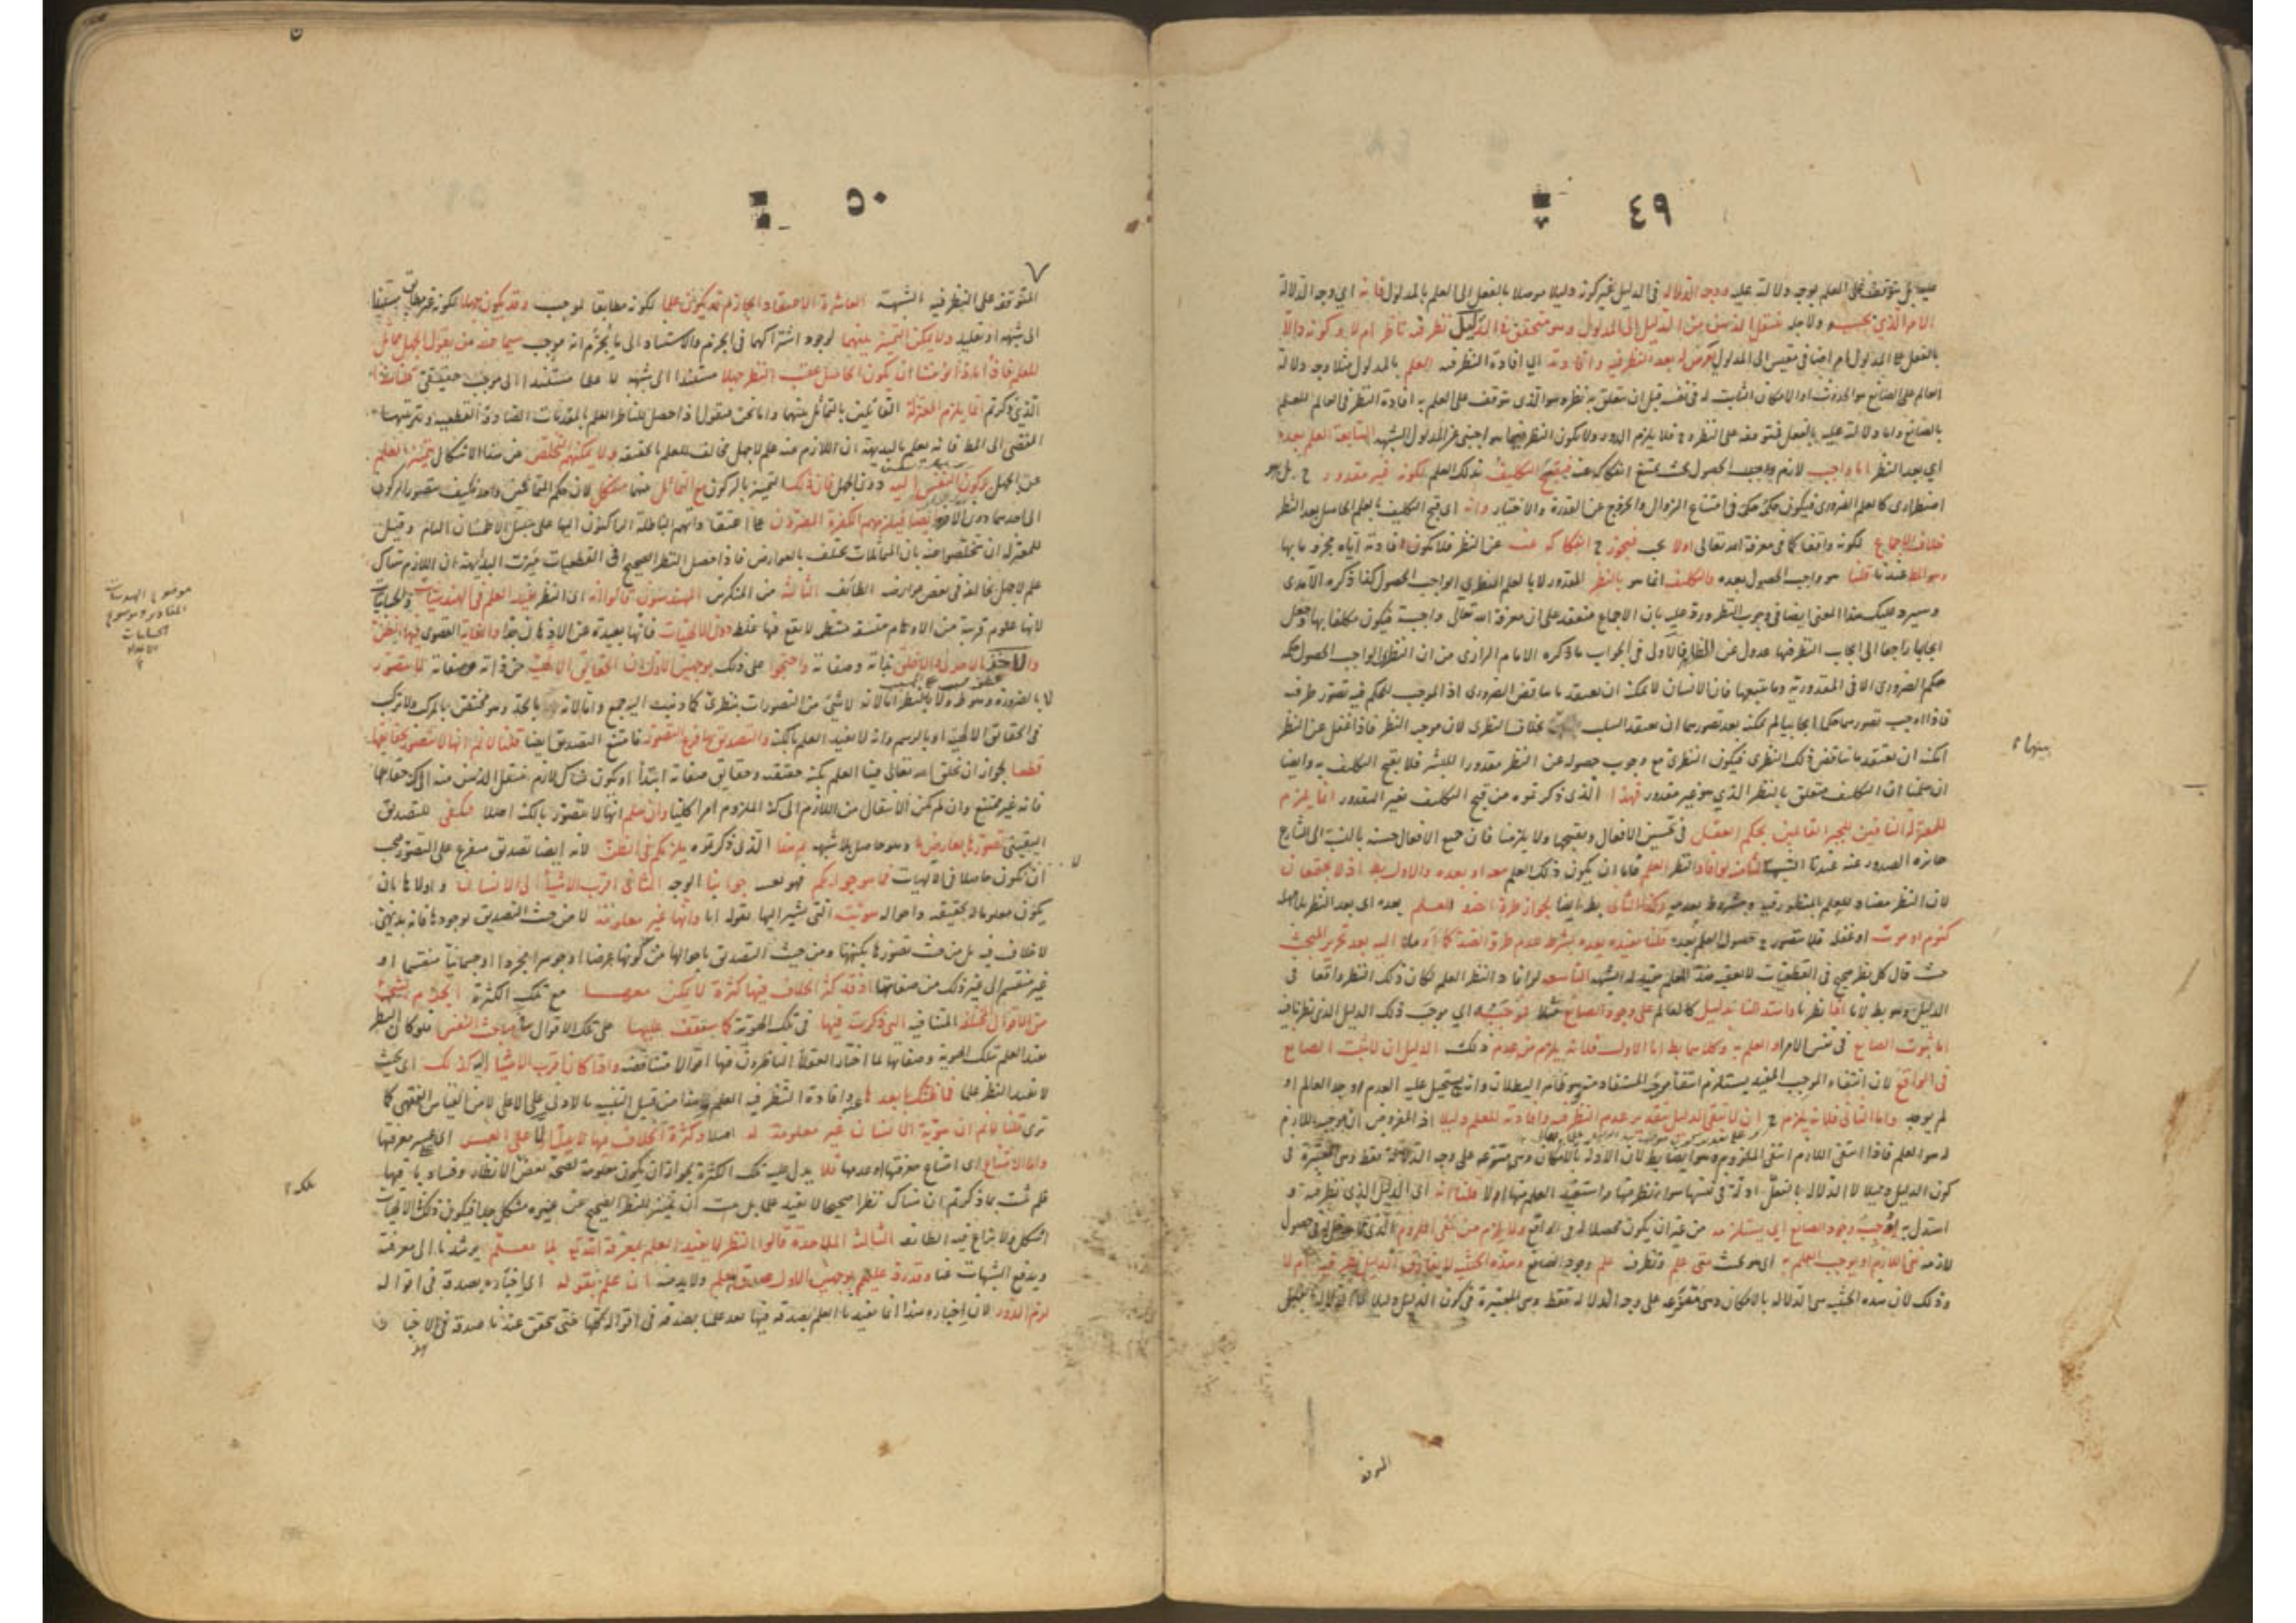 ٤٩
عليه بل يتوقف على العلم بوجه دلالته عليه ووجه الدلالة في الدليل غير كونه دليلا موصلا بالفعل الى العلم بالمدلول فانه اي وجه الدلالة
الامر الذي بحسبه ولاجله ينتقل الذهن من الدليل الى المدلول وهو متحقق في الدليل نظر فيه ناظر ام لا بد كونه دالا
بالفعل على المدلول امر اضافي مقيس الى المدلول يعرض له بعد النظر فيه وافادته اي افادة النظر فيه العلم بالمدلول مثلا وجه دلالة
العالم على الصانع هو الحدوث او الامكان الثابت له في نفسه قبل ان يتعلق به نظر وهو الذي يتوقف على العلم به افادة النظر في العالم للعلم
بالصانع واما دلالته عليه بالفعل فيتوقف على النظر وح فلا يلزم الدور ولا يكون النظر فيما هو اجنبي عن المدلول الشبهة السابعة العلم بعده
اي بعد النظر اما واجب لازم الحصول بحيث يمتنع انفكاكه عنه فيقبح التكليف بذلك العلم لكونه غير مقدور ح بل هو
اضطراري كالعلم الضروري فيكون حكمه حكمه في امتناع الزوال والخروج عن القدرة والاختيار وانه اي قبح التكليف بالعلم الحاصل بعد النظر
خلاف الاجماع لكونه واقعا كما في معرفة الله تعالى او لا يجب فيجوز ح انفكاكه عنه عن النظر فلا يكون افادته اياه مجزوما بها
وهو المط عندنا قلنا هو واجب الحصول بعده والتكليف انما هو بالنظر المقدور لا بالعلم النظري الواجب الحصول كذا ذكره الآمدي
وسيرد عليك هذا المعنى ايضا في وجوب النظر ورد عليه بان الاجماع منعقد على ان معرفة الله تعالى واجبة فيكون مكلفا بها وجعل
ايجابها راجعا الى ايجاب النظر فيها عدول عن الظاهر فالاولى في الجواب ما ذكره الامام الرازي من ان النظري الواجب الحصول حكمه
حكم الضروري الا في المقدورية وما يتبعها فان الانسان لا يمكنه ان يعتقد ما يناقض الضروري اذ الموجب للحكم فيه تصور طرفيه
فاذا اوجب تصورهما حكما ايجابيا لم يمكنه بعد تصورهما ان يعتقد السلب بخلاف النظري لان موجبه النظر فاذا غفل عن النظر
امكنه ان يعتقد ما يناقض ذلك النظري فيكون النظري مع وجوب حصوله عن النظر مقدورا للبشر فلا يقبح التكليف به وايضا
ان سلمنا ان التكليف متعلق بالنظر الذي هو غير مقدور فهذا الذي ذكرتموه من قبح التكليف بغير المقدور انما يلزم
المعتزلة النافين للجبر القائلين بحكم العقل في تحسين الافعال وتقبيحها ولا يلزمنا فان جميع الافعال حسنة بالنسبة الى الشارع
جائزة الصدور عنه عندنا الشبهة الثامنة لو افاد النظر العلم فاما ان يكون ذلك العلم معه او بعده والاول بط اذ لا يجتمعان
لان النظر مضاد للعلم بالمنظور فيه ومشروط بعدمه وكذا الثاني بط ايضا لجواز طرو الضد للعلم بعده اي بعد النظر بلا مهلة
كنوم او موت او غفلة فلا يتصور ح حصول العلم بعده قلنا يفيده بعده بشرط عدم طرو الضد كما اومأنا اليه بعد تحرير المبحث
حيث قال كل نظر صحيح في القطعيات لا يعقبه ضد للعلم مفيد له الشبهة التاسعة لو افاد النظر العلم لكان ذلك النظر واقعا في
الدليل وهو بط لانا اذا نظرنا واستدللنا بدليل كالعالم على وجود الصانع مثلا فموجبه اي موجب ذلك الدليل الذي نظرنا فيه
اما ثبوت الصانع في نفس الامر او العلم به وكلاهما بط اما الاول فلانه يلزم من عدم ذلك الدليل ان لا يثبت الصانع
في الواقع لان انتفاء الموجب المفيد يستلزم انتفاء موجبه المستفاد منه وهو ظاهر البطلان وانه يستحيل عليه العدم وجد العالم او
لم يوجد واما الثاني فلانه يلزم ح ان لا يبقى الدليل بتقدير عدم النظر فيه وافادته للعلم دليلا اذ المفروض ان موجبه اللازم
له هو العلم فاذا انتفى اللازم انتفى الملزوم وهو ايضا بط لان الادلة بالامكان وهي متفرعة على وجه الدلالة فقط وهي المعتبرة في
كون الدليل دليلا لا الدلالة بالفعل ادلة في نفسها سواء نظر فيها واستفيد العلم منها او لا قلنا انه اي الدليل الذي نظر فيه و
استدل به يوجب وجود الصانع اي يستلزمه من غير ان يكون محصلا له في الواقع ولا يلزم من نفي الملزوم الذي لا مدخل له في حصول
لازمه نفي اللازم او يوجب العلم به اي هو بحيث متى علم ونظر فيه علم وجود الصانع وهذه الحيثية لا تفارق الدليل نظر فيه ام لا
وذلك لان هذه الحيثية هي الدلالة بالامكان وهي متفرعة على وجه الدلالة فقط وهي المعتبرة في كون الدليل دليلا لا الدلالة بالفعل
بينها
المتوقفة
٥٠
المتوقفة على النظر فيه الشبهة العاشرة الاعتقاد الجازم قد يكون علما لكونه مطابقا لموجب وقد يكون جهلا لكونه غير مطابق مستندا
الى شبهة او تقليد ولا يمكن التمييز بينهما لوجود اشتراكهما في الجزم والاستناد الى ما يجزم انه موجب سيما عند من يقول الجهل مماثل
للعلم فاذا ماذا يؤمننا ان يكون الحاصل عقيب النظر جهلا مستندا الى شبهة لا علما مستندا الى موجب حقيقي قلنا هذا
الذي ذكرتم انما يلزم المعتزلة القائلين بالتماثل بينهما واما نحن فنقول اذا حصل للناظر العلم بالمقدمات الصادقة القطعية وبترتيبها
المفضي الى المط فانه يعلم بالبديهة ان اللازم عنه علم لا جهل مخالف للعلم في حقيقته ولا يمكنهم التخلص عن هذا الاشكال بتمييز العلم
عن الجهل بركون النفس اليه دون الجهل فان ذلك التمييز بالركون مع التماثل بينهما مشكل لان حكم المتماثلين واحد فكيف يتصور الركون
الى احدهما دون الآخر وايضا فيلزمهم الكفرة المصرون على اعتقاداتهم الباطلة الراكنون اليها على سبيل الاطمئنان التام وقيل
للمعتزلة ان يتخلصوا عنه بان المتماثلات تختلف بالعوارض فاذا حصل النظر الصحيح في القطعيات ميزت البديهة ان اللازم هناك
علم لا جهل يخالفه في بعض عوارضه الطائفة الثانية من المنكرين المهندسون قالوا انه اي النظر يفيد العلم في الهندسيات والحسابيات
لانها علوم قريبة من الافهام متسقة منتظمة لا يقع فيها غلط دون الالهيات فانها بعيدة عن الاذهان جدا والغاية القصوى فيها الظن
والاخذ بالاحرى والاخلق بذاته وصفاته واحتجوا على ذلك بوجهين الاول ان الحقائق الالهية من ذاته وصفاته لا تتصور
لا بالضرورة وهو ظ ولا بالنظر اما لانه لا شيء من التصورات بنظري كما ذهب اليه جمع واما لانه بالحد وهو مختص بالمركب ولا تركب
في الحقائق الالهية او بالرسم وانه لا يفيد العلم بالكنه والتصديق بها فرع التصور فامتنع التصديق ايضا قلنا لا نم انها لا تتصور بحقائقها
قطعا لجواز ان يخلق الله تعالى فينا العلم بكنه حقيقته وحقائق صفاته ابتداء او يكون هناك لازم ينتقل الذهن منه الى كنه حقائقها
فانه غير ممتنع وان لم يكن الانتقال من اللازم الى كنه الملزوم امرا كليا وان سلم انها لا تتصور بالكنه اصلا فيكفي للتصديق
اليقيني تصورها بعارض ما وهو حاصل بلا شبهة ثم هذا الذي ذكرتموه يلزمكم في الظن لانه ايضا تصديق متفرع على التصور فيجب
ان يكون حاصلا في الالهيات فما هو جوابكم فهو بعينه جوابنا الوجه الثاني اقرب الاشياء الى الانسان واولاها بان
يكون معلوما له بحقيقته واحواله هويته التي يشير اليها بقوله انا وانها غير معلومة لا من حيث التصديق بوجودها فانه بديهي
لا خلاف فيه بل من حيث تصورها بكنهها ومن حيث التصديق باحوالها من كونها عرضا او جوهرا مجردا او جسمانيا منقسما او
غير منقسم الى غير ذلك من صفاتها اذ قد كثر الخلاف فيها كثرة لا يمكن معها مع تلك الكثرة الجزم بشيء
من الاقوال المختلفة المتنافية التي ذكرت فيها في تلك الهوية كما ستقف عليها على تلك الاقوال في مباحث النفس فلو كان النظر
مفيد العلم بتلك الهوية وصفاتها لما اختار العقلاء الناظرون فيها اقوالا متناقضة واذا كان اقرب الاشياء اليه كذلك اي بحيث
لا يفيد النظر علما فما ظنك بابعدها عنه وافادة النظر فيه العلم وهذا من قبيل التنبيه بالادنى على الاعلى لا من القياس الفقهي كما
ترى قلنا لا نم ان هوية الانسان غير معلومة له اصلا وكثرة الخلاف فيها لا يدل الا على العسر اي عسر معرفتها
واما الامتناع اي امتناع معرفتها وعدمها فلا يدل عليه تلك الكثرة لجواز ان يكون معلومة لصحة بعض الانظار وفساد باقيها
فلم يثبت بما ذكرتم ان هناك نظرا صحيحا لا يفيد علما بل يثبت ان تمييز النظر الصحيح عن غيره مشكل جدا فيكون ذلك في الالهيات
اشكل ولا نزاع فيه الطائفة الثالثة الملاحدة قالوا النظر لا يفيد العلم بمعرفة الله تع بلا معلم يرشدنا الى معرفته
ويدفع الشبهات عنا وقد رد عليهم بوجهين الاول صدق المعلم ولا بد منه ان علم بقوله اي اخباره بصدقه في اقواله
لزم الدور لان اخباره هذا انما يفيدنا العلم بصدقه فيها بعد علمنا بصدقه في اقواله كلها حتى يتحقق عندنا صدقه في الاخبار
موضوع الهندسة
المقادير وموضوع
الحسابيات
الاعداد
تلك